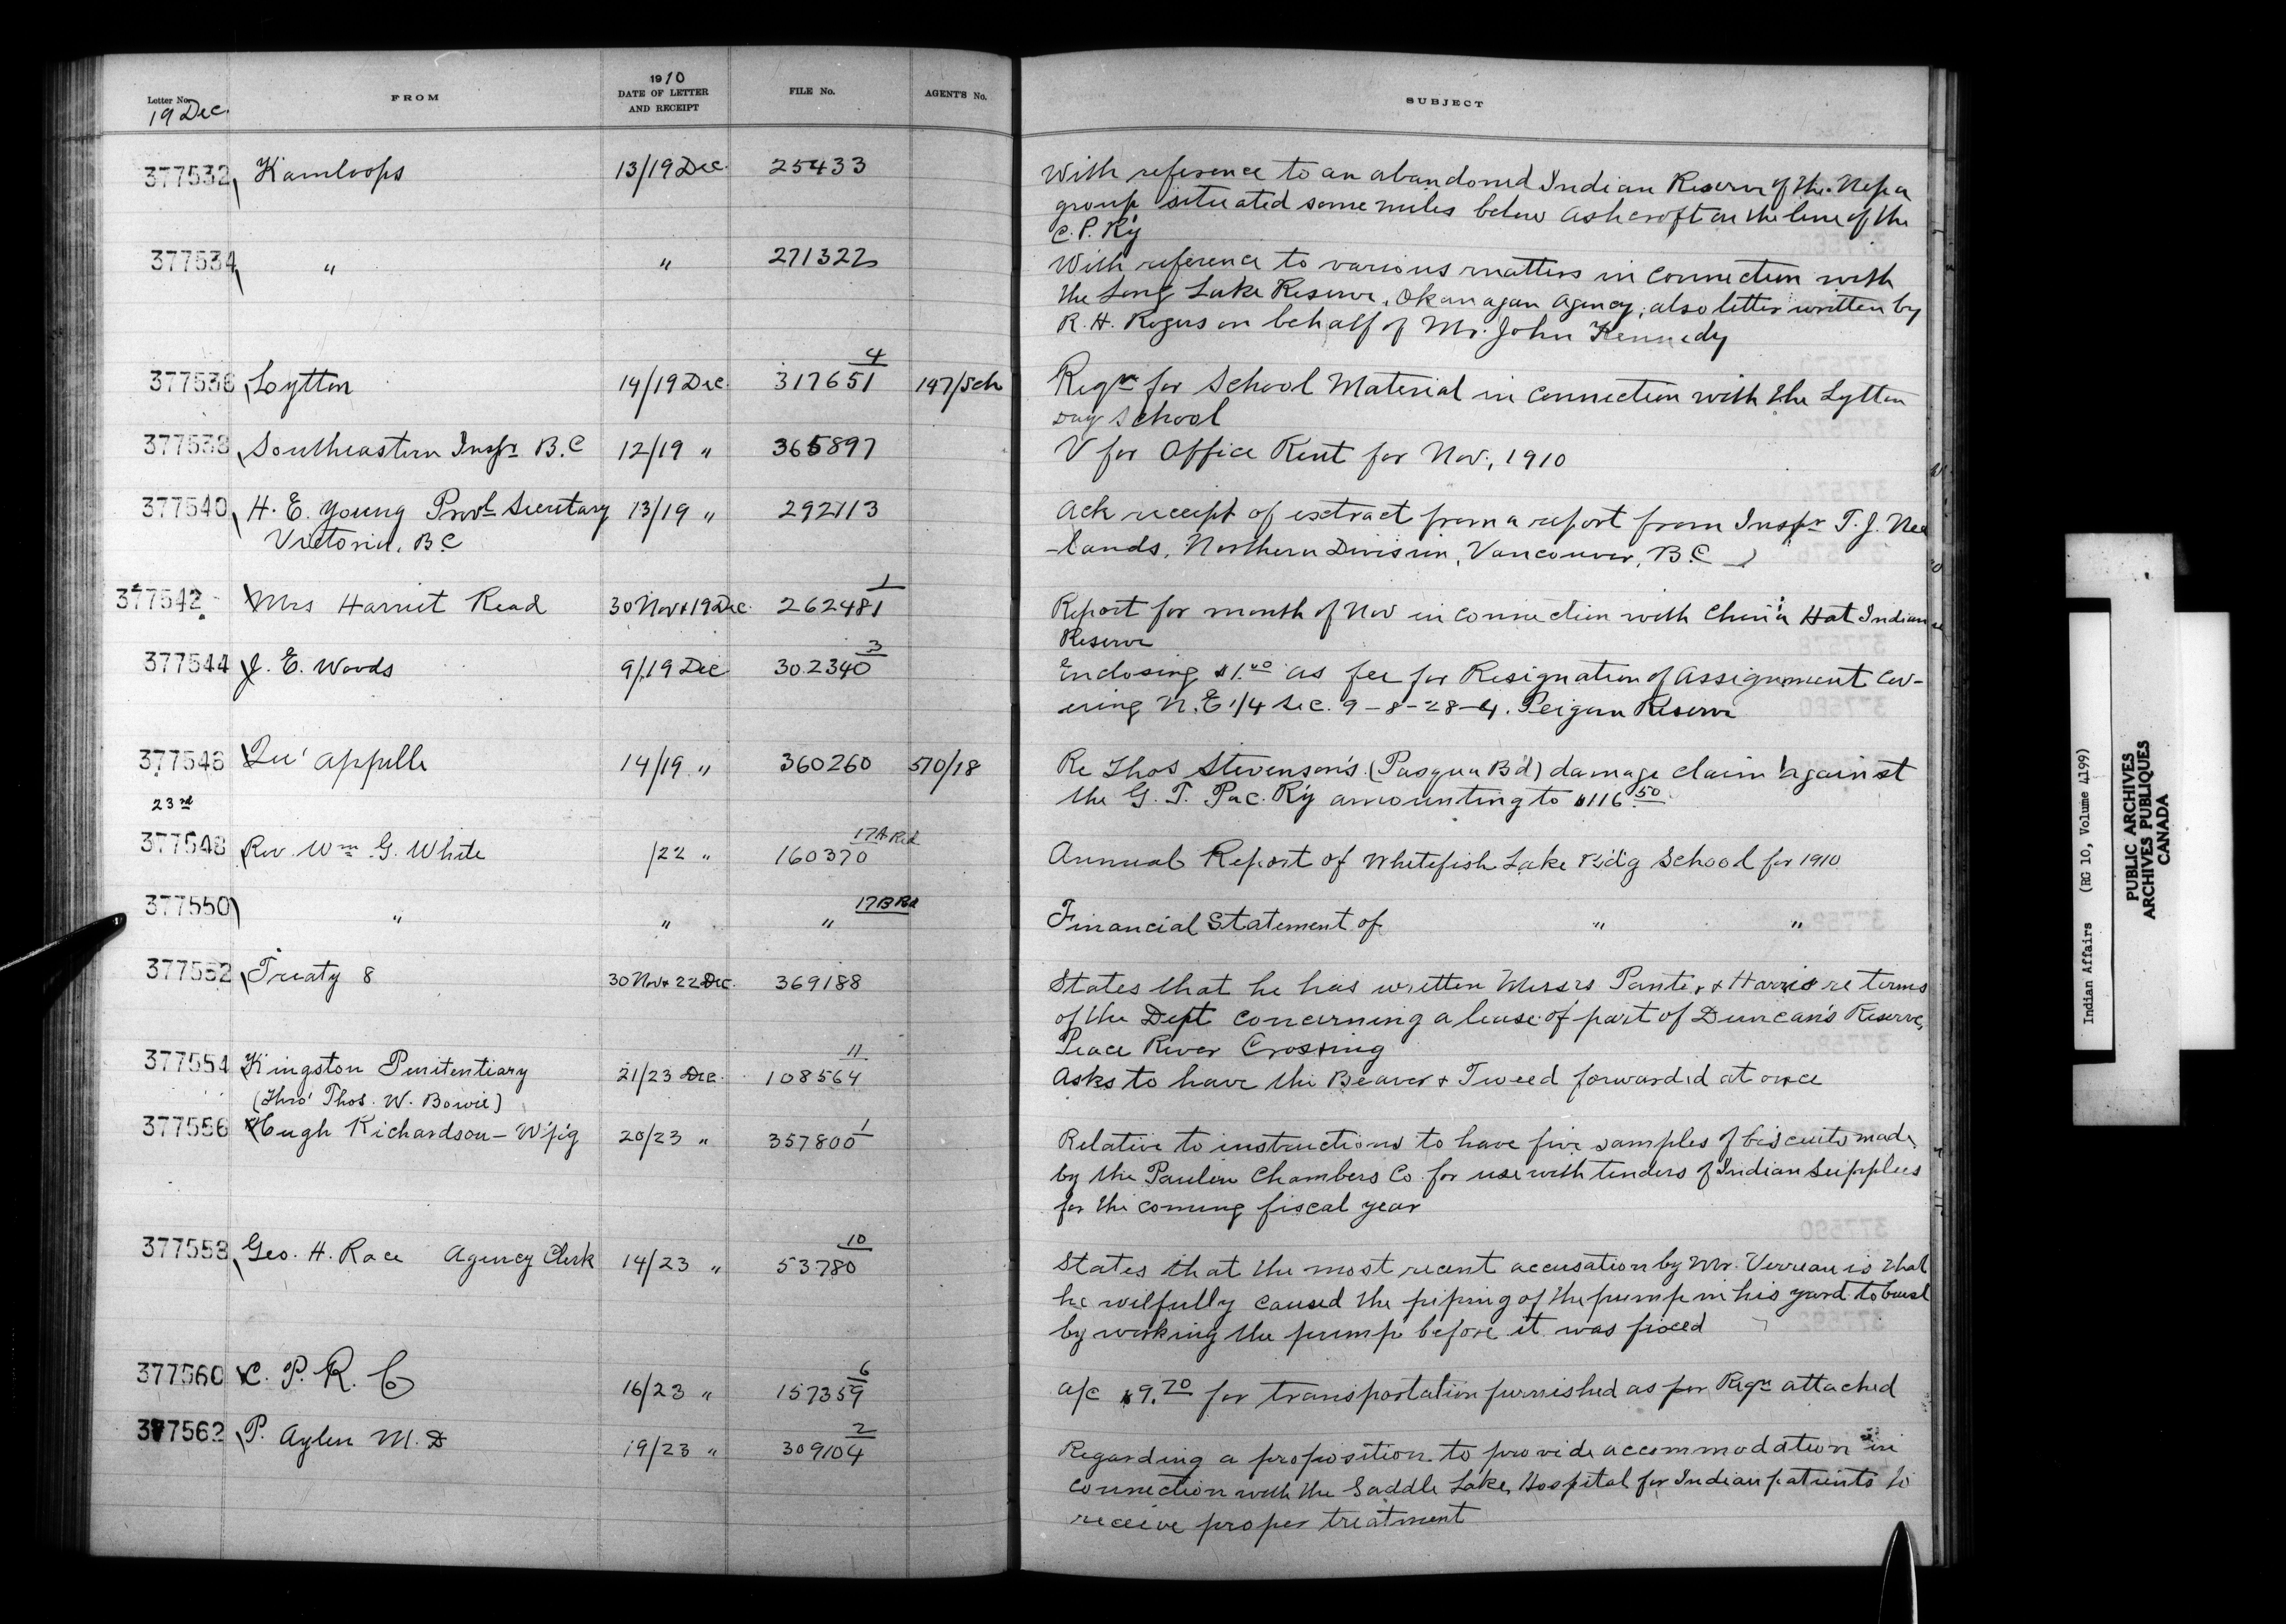 Letter No. FROM 1910 DATE OF LETTER AND RECEIPT FILE No. AGENT'S No. SUBJECT
19 Dec.
377532 Kamloops 13/19 Dec. 25433 With reference to an abandoned Indian Reserve of the Nepa
group situated some miles below Ashcroft on the line of the
C. P. Ry
377534 " " 271322 With reference to various matters in connection with
the Long Lake Reserve, Okanagan Agency, also letter written by
R. H. Rogers on behalf of Mr. John Kennedy
377536 Lytton 14/19 Dec. 317651 4 147/Sch Reqn for School Material in connection with the Lytton
Day School
377538 Southeastern Inspr B.C 12/19 " 365897 V for Office Rent for Nov., 1910
377540 H. E. Young Provl Secretary 13/19 " 292113 Ack receipt of extract from a report from Inspr T. J. Nee
Victoria, B.C -lands, Northern Division, Vancouver, B.C
377542 Mrs Harriet Read 30 Nov & 19 Dec. 262481 1 Report for month of Nov in connection with China Hat Indian
Reserve
377544 J. E. Woods 9/19 Dec 302340 3 Enclosing $1.00 as fee for Resignation of Assignment Cov-
ering N.E 1/4 Sec. 9-8-28-4. Peigan Reserve
377546 Qu'appelle 14/19 " 360260 570/18 Re Thos Stevenson's (Pasqua B'd) damage claim against
the G. T. Pac. Ry amounting to $116.50
23rd
377548 Rev. Wm G. White /22 " 160370 17A Red Annual Report of Whitefish Lake B'd'g School for 1910
377550 " " " 17B Red Financial Statement of " "
377552 Treaty 8 30 Nov & 22 Dec. 369188 States that he has written Messrs Panter & Harris re terms
of the Dept concerning a lease of part of Duncan's Reserve,
Peace River Crossing
377554 Kingston Penitentiary 21/23 Dec. 108564 11 Asks to have the Beaver & Tweed forwarded at once
(Thro' Thos. W. Bowie)
377556 Hugh Richardson - W'p'g 20/23 " 357800 1 Relative to instructions to have five samples of biscuits made
by the Paulin Chambers Co. for use with tenders of Indian Supplies
for the coming fiscal year
377558 Geo. H. Race Agency Clerk 14/23 " 53780 10 States that the most recent accusation by Mr. Verreau is that
he wilfully caused the piping of the pump in his yard to burst
by working the pump before it was fixed
377560 C. P. R. Co 16/23 " 157359 6 a/c $9.70 for transportation furnished as per Reqn attached
377562 P. Aylen M.D 19/23 " 309104 2 Regarding a proposition to provide accommodation in
connection with the Saddle Lake Hospital for Indian patients to
receive proper treatment
Indian Affairs (RG 10, Volume 4199)
PUBLIC ARCHIVES
ARCHIVES PUBLIQUES
CANADA